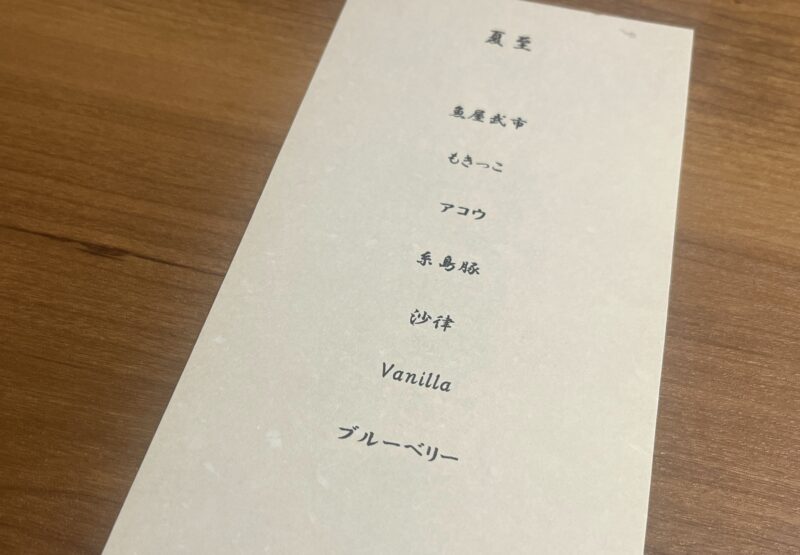 夏至
魚屋武市
もきっこ
アコウ
糸島豚
沙律
Vanilla
ブルーベリー